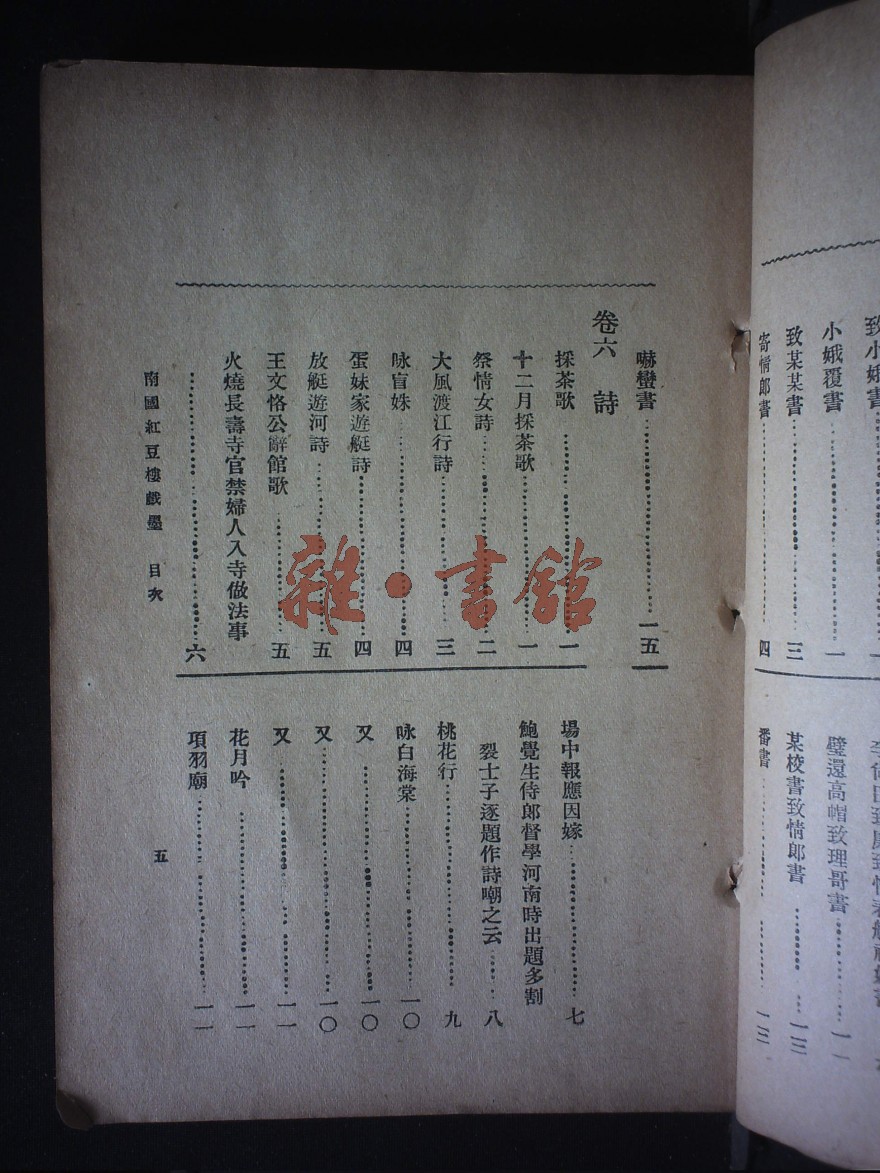 致小娥書
小娥覆書 一
致某某書 三
寄情郎書 四
璧還高帽致理哥書 一一
某校書致情郎書 一三
番書 一三
嚇蠻書 一五
卷六 詩
採茶歌 一
十二月採茶歌 一
祭情女詩 二
大風渡江行詩 三
咏盲妹 四
蛋妹家遊艇詩 四
放艇遊河詩 五
王文恪公辭館歌 五
火燒長壽寺官禁婦人入寺做法事
六
場中報應因嫁 七
鮑覺生侍郎督學河南時出題多割
裂士子逐題作詩嘲之云 八
桃花行 九
咏白海棠 一〇
又 一〇
又 一〇
又 一一
花月吟 一一
項羽廟 一一
南國紅豆樓戲墨 目次
五
雜·書館